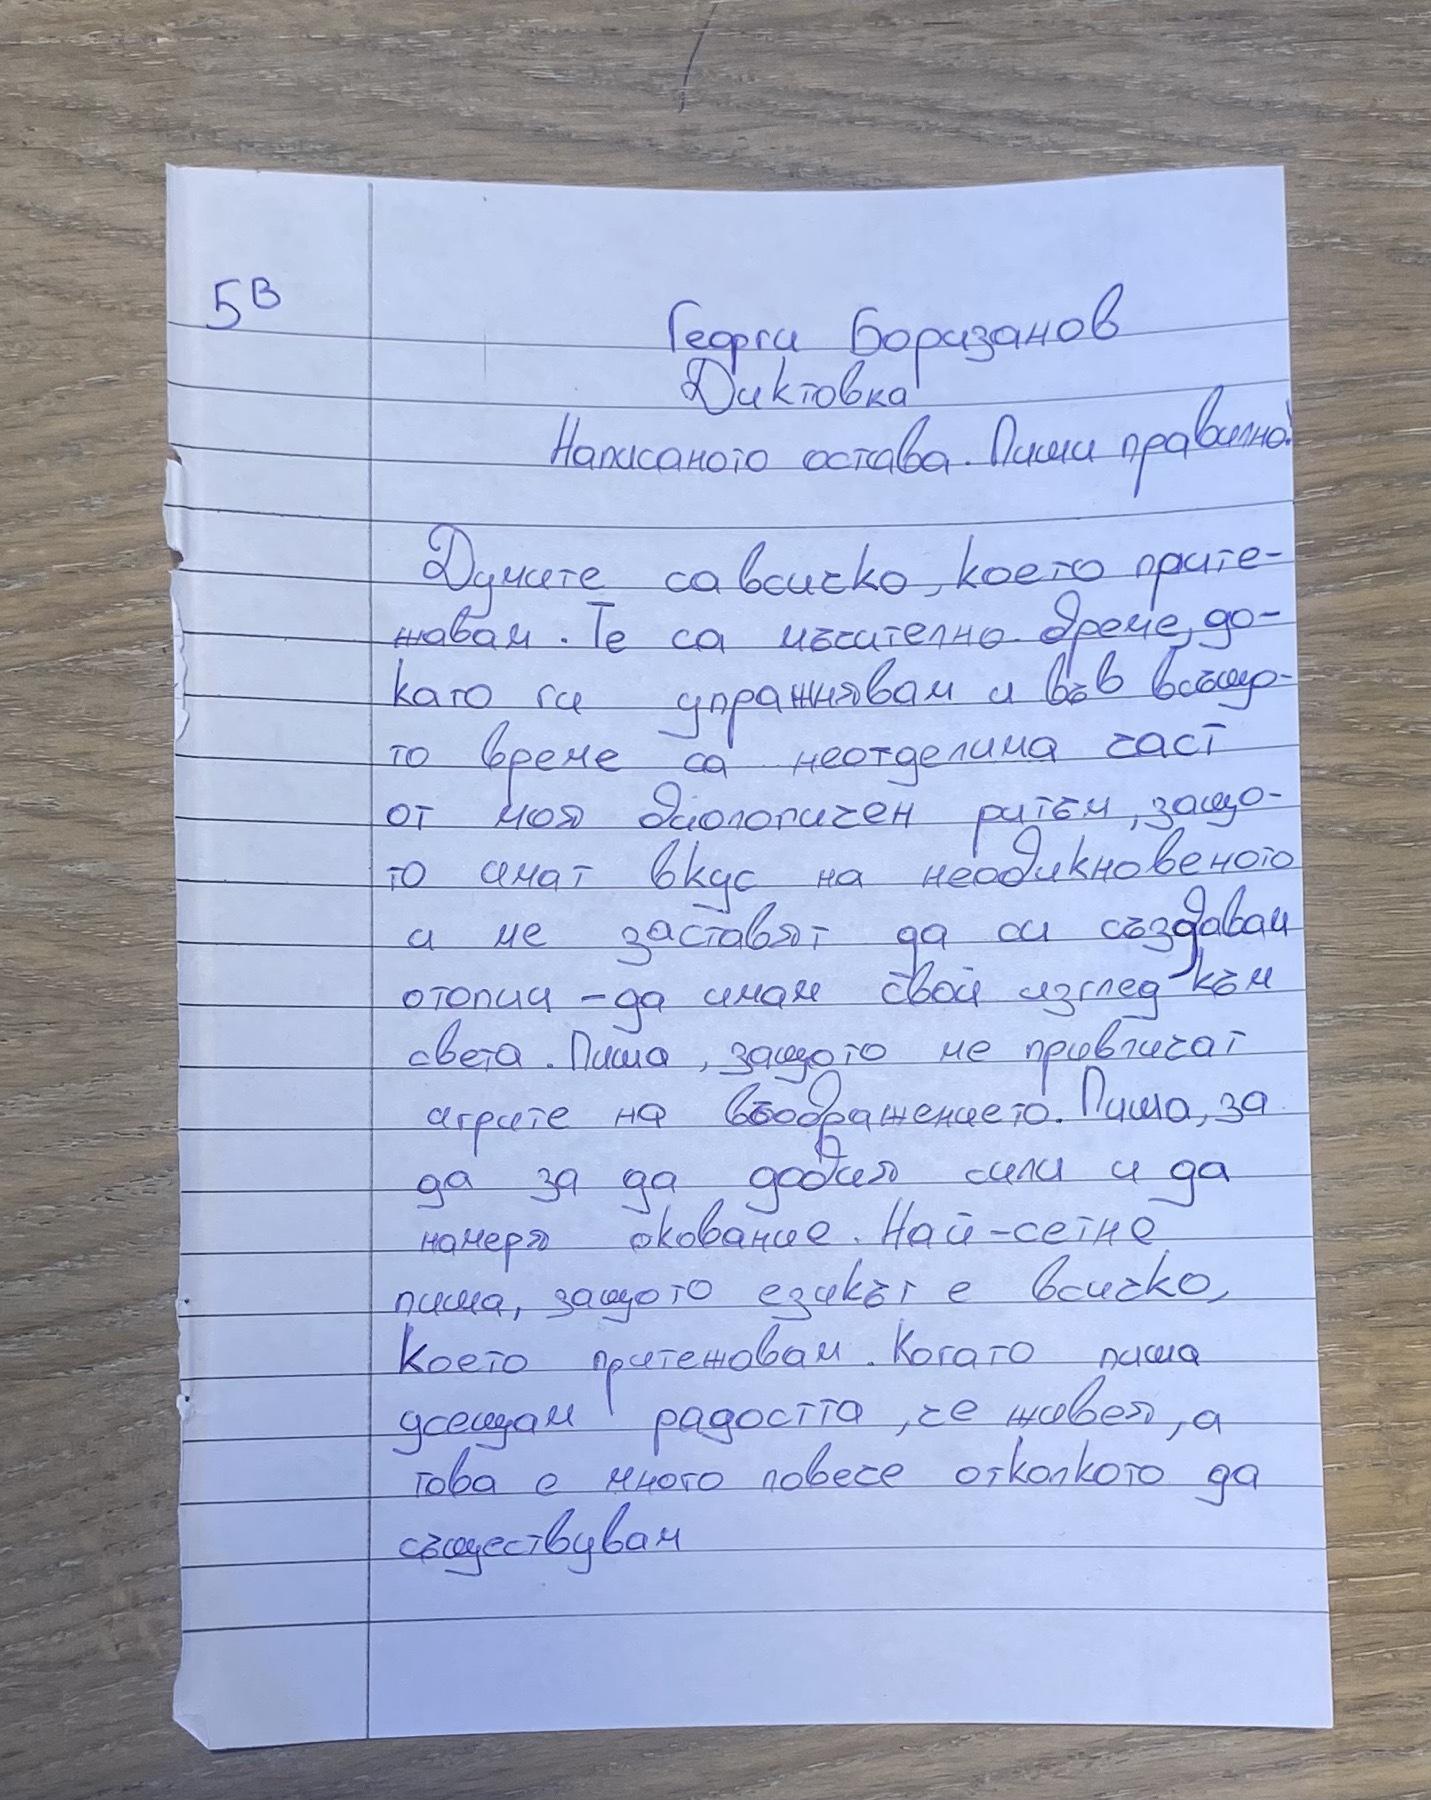 5В
Георги Боризанов
Диктовка
Написаното остава. Пиши правилно!
Думите са всичко, което прите-
жавам. Те са мъчително бреме, до-
като ги упражнявам и във всъщо-
то време са неотделима част
от моя биологичен ритъм, защо-
то имат вкус на необикновеното
и ме заставят да си създавам
отопии - да имам свой изглед към
света. Пиша, защото ме привличат
игрите на въображението. Пиша, за
да за да добия сили и да
намеря окование. Най-сетне
пиша, защото езикът е всичко,
което притежовам. Когато пиша
усещам радостта, че живея, а
това е много повече отколкото да
съществувам